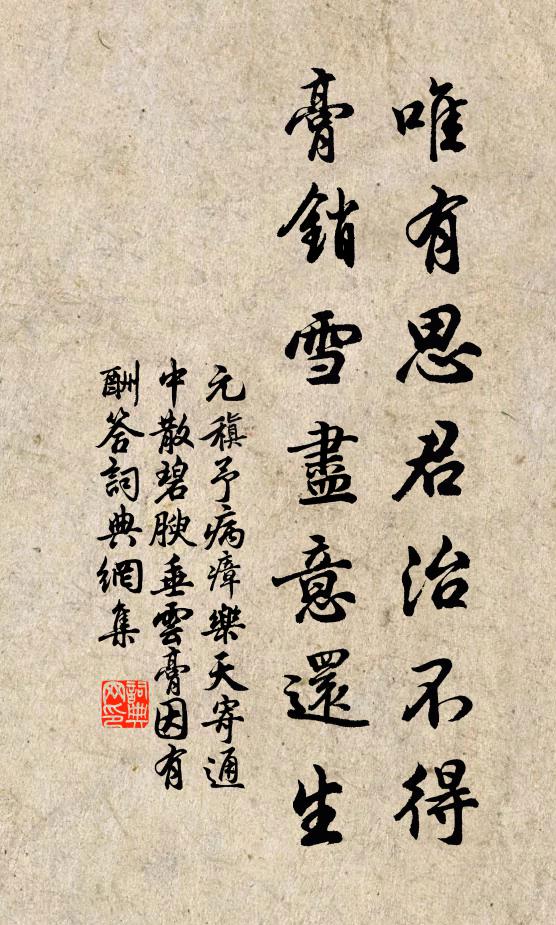 唯有思君治不得
膏銷雪盡意還生
元稹予病瘴樂天寄通
中散碧腴垂雲膏因有
酬答詞典網集
詞典
网印